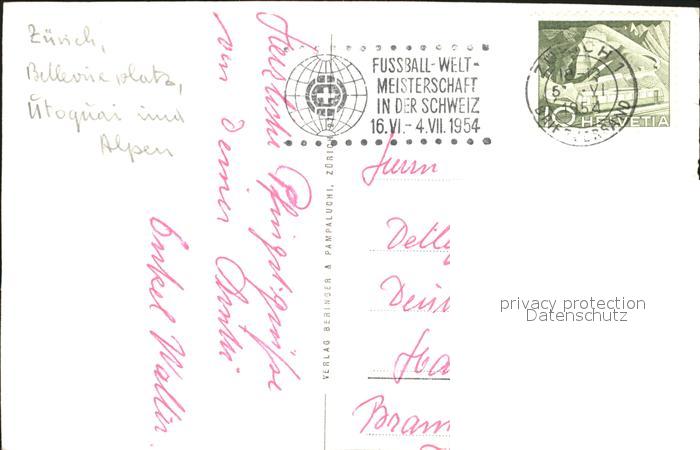 Zürich,
Bellevueplatz,
Utoquai und
Alpen
Herzliche Pfingstgrüße
von Deiner
Onkel
FUSSBALL-WELT-
MEISTERSCHAFT
IN DER SCHWEIZ
16.VI.-4.VII.1954
ZÜRICH 1
5. VI
1954
BRIEFVERSAND
HELVETIA
VERLAG BERINGER & PAMPALUCHI, ZÜRICH
Herrn
privacy protection
Datenschutz